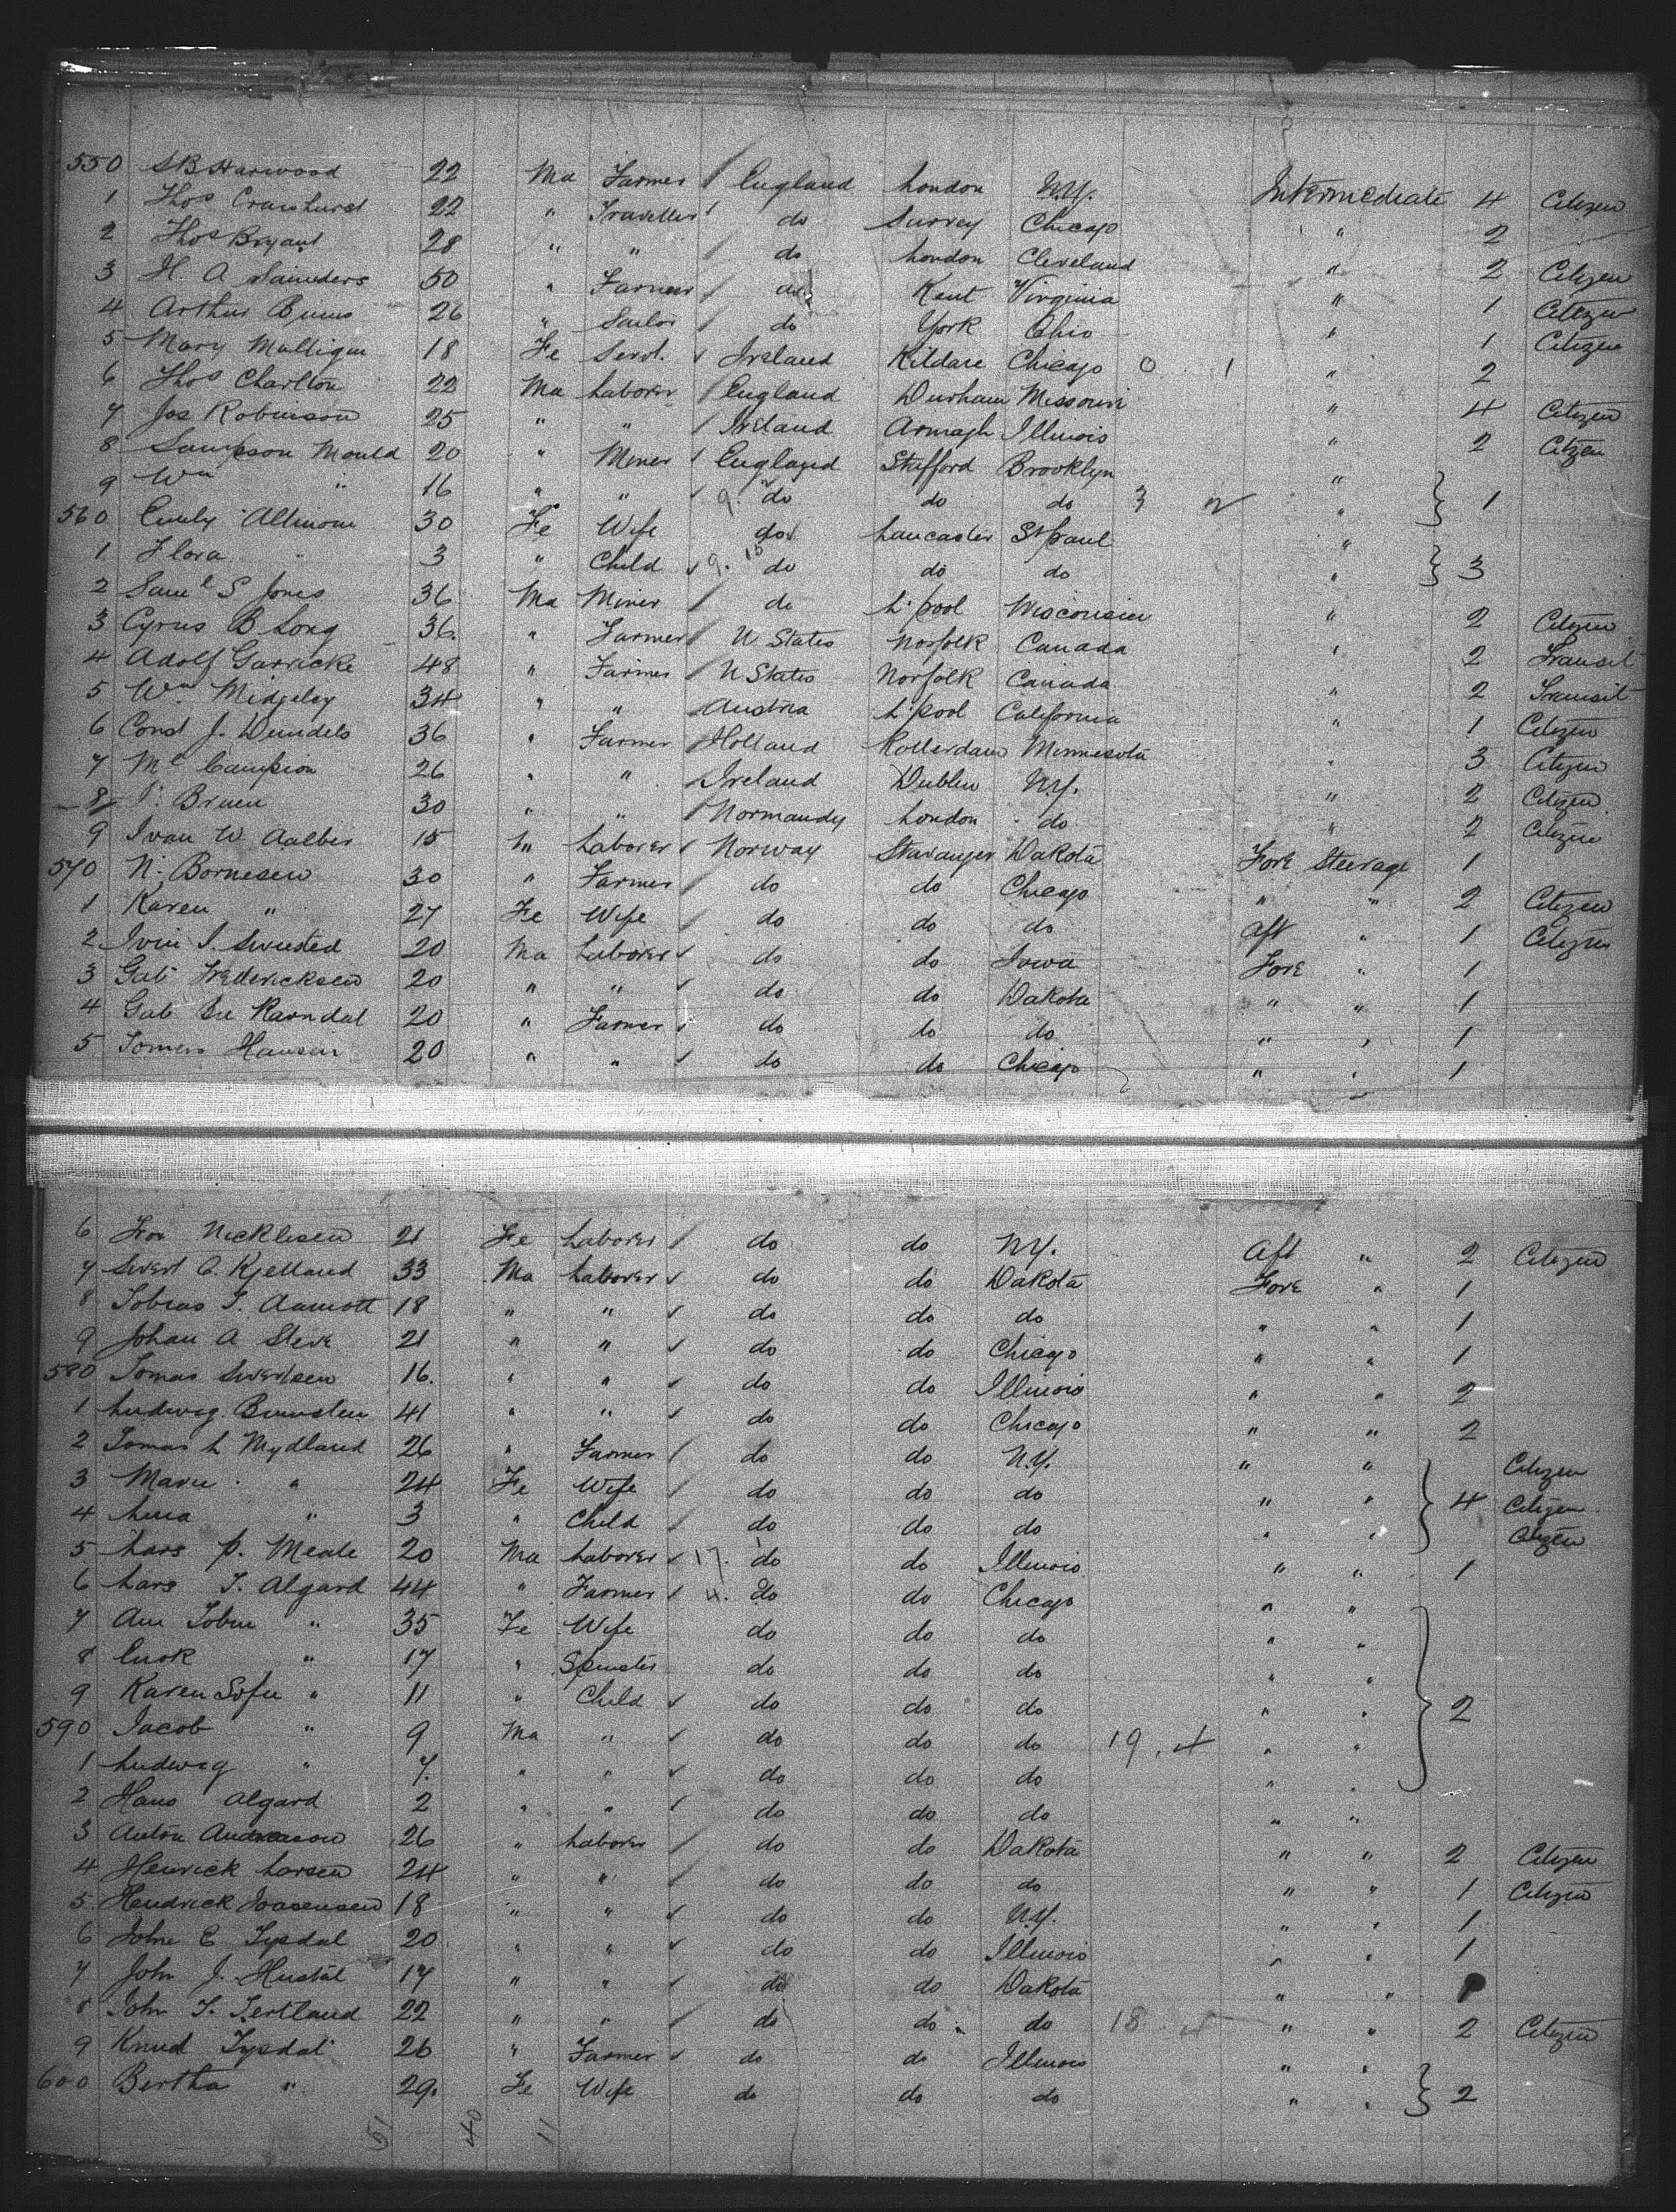 550 S B Harwood 22 Ma Farmer England London N.Y. Intermediate 4 Citizen
1 Thos Crawhurst 22 " Traveller do Surrey Chicago " 2
2 Thos Bryant 28 " " do London Cleveland " 2 Citizen
3 H. A Saunders 50 " Farmer do Kent Virginia " 1 Citizen
4 Arthur Burns 26 " Sailor do York Ohio " 1 Citizen
5 Mary Mulligan 18 Fe Servt. Ireland Kildare Chicago 0 1 " 2
6 Thos Charlton 22 Ma Laborer England Durham Missouri " 4 Citizen
7 Jas Robinson 25 " " Ireland Armagh Illinois " 2 Citizen
8 Sampson Mould 20 " Miner England Stafford Brooklyn "
9 Wm " 16 " " 9. do do do 3 2 " 1
560 Emily 30 Fe Wife do Lancaster St paul "
1 Flora " 3 " Child 9. do do do " 3
2 Saml S Jones 36 Ma Miner do L'pool Wisconsin " 2 Citizen
3 Cyrus B Long 36. " Farmer U States Norfolk Canada " 2 Transit
4 Adolf Garricke 48 " Farmer U States Norfolk Canada " 2 Transit
5 Wm Midgeley 34 " " Austria L'pool California " 1 Citizen
6 Cond J. 36 " Farmer Holland Rotterdam Minnesota " 3 Citizen
7 Mc Campion 26 " " Ireland Dublin N.Y. " 2 Citizen
8 Bruen 30 " " Normandy London do " 2 Citizen
9 Ivan W. Aalber 15 " Laborer Norway Stavanger Dakota Fore Steerage 1
570 N. Bornesen 30 " Farmer do do Chicago " " 2 Citizen
1 Karen " 27 Fe Wife do do do aft " 1 Citizen
2 20 Ma Laborer do do Iowa Fore " 1
3 Gab Fredericksen 20 " " do do Dakota " " 1
4 Gab Ravndal 20 " Farmer do do do " " 1
5 Hansen 20 " " do do Chicago " " 1
6 Nicklisen 21 Fe Laborer do do N.Y. Aft " 2 Citizen
7 Swert C. Kjelland 33 Ma Laborer do do Dakota Fore " 1
8 Tobias T. Aamott 18 " " do do do " " 1
9 Johan A 21 " " do do Chicago " " 1
580 Tomas Swertsen 16. " " do do Illinois " " 2
1 Ludwig 41 " " do do Chicago " " 2
2 Tomas L Mydland 26 " Farmer do do N.Y. " " Citizen
3 Marie " 24 Fe Wife do do do " " 4 Citizen
4 " 3 " Child do do do " " Citizen
5 Lars P. Meale 20 Ma Laborer 17. do do Illinois " " 1
6 Lars T. Algard 44 " Farmer 4. do do Chicago " "
7 Ann " 35 Fe Wife do do do " "
8 " 17 " Spinster do do do " "
9 Karen Sofie " 11 " Child do do do " " 2
590 Jacob " 9 Ma " do do do 19. 4 " "
1 Ludwig " 7. " " do do do " "
2 Hans Algard 2 " " do do do " "
3 Anton Andreason 26 " Laborer do do Dakota " " 2 Citizen
4 Henrick Larsen 24 " " do do do " " 1 Citizen
5 Hendrick 18 " " do do N.Y. " " 1
6 John E Tysdal 20 " " do do Illinois " " 1
7 John J. Hustal 17 " " do do Dakota " "
8 John T. 22 " " do do do 18 " " 2 Citizen
9 Knud Tysdal 26 " Farmer do do Illinois " "
600 Bertha " 29. Fe Wife do do do " " 2
51 40 11